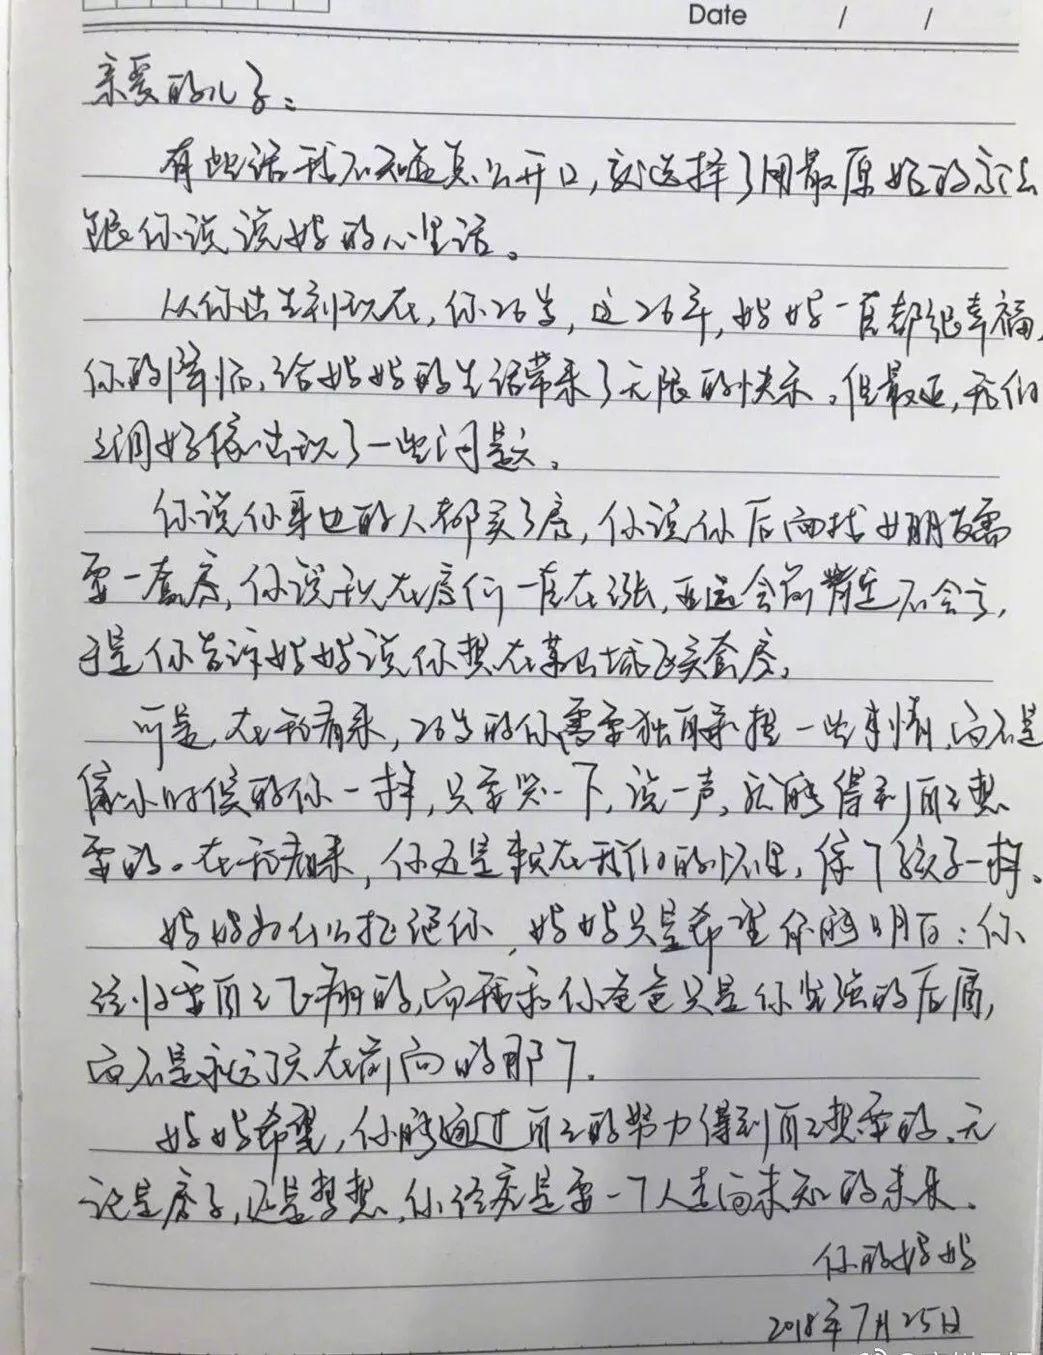 Date / /
亲爱的儿子：
有些话我不知道怎么开口，就选择了用最原始的方法
跟你说说妈妈的心里话。
从你出生到现在，你26岁，这26年，妈妈一直都很幸福，
你的降临，给妈妈的生活带来了无限的快乐。但最近，我们
之间好像出现了一些问题。
你说你身边的人都买了房，你说你后面找女朋友需
要一套房，你说现在房价一直在涨，亚运会前肯定不会亏，
于是你告诉妈妈说你想在买套房。
可是，在我看来，26岁的你需要独自承担一些事情，而不是
像小时候的你一样，只要哭一下，说一声，就能得到自己想
要的。在我看来，你还是赖在我们的怀里，像个孩子一样。
妈妈为什么拒绝你，妈妈只是希望你能明白：你
终归要自己飞翔的，而我和你爸爸只是你坚强的后盾，
而不是永远顶在前面的那个。
妈妈希望，你能通过自己的努力得到自己想要的，无
论是房子，还是梦想，你终究是要一个人走向未知的未来。
你的妈妈
2018年7月25日